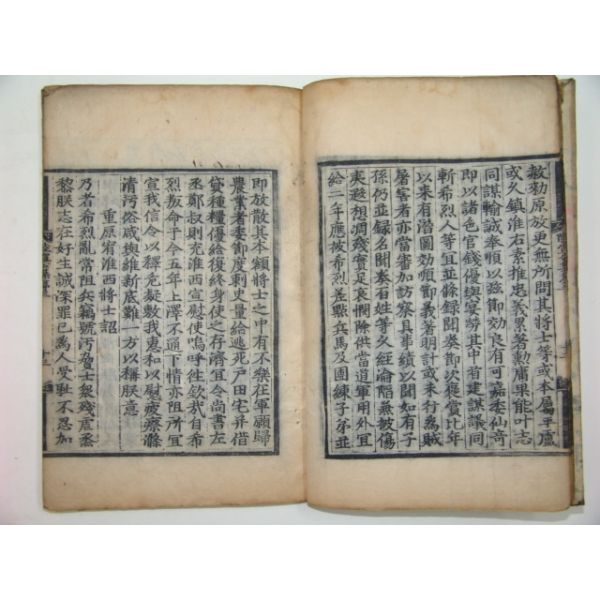 赦勅原放更無所問其將士等或本屬平盧
或久鎮淮右素推忠義累著勳庸果能叶志
同謀輸誠奉順以玆節効良有可嘉委仙奇
即以諸色官錢優與宴勞其中有建謀議同
斬希烈人等宜並條録聞奏節次褒賞比年
以來有潛圖効順節義著明計或未行為賊
屠害者亦當審加訪察具事績以聞如有子
孫仍並録名聞奏百姓等久經淪陷無被傷
夷遐想凋殘實足哀憫除供當道軍用外宜
給二年應被希烈差點兵馬及團練子弟並
即放散其本額將士之中有不樂在軍願歸
農業者委節度刺史量給逃死戶田宅并借
貸種糧優給復終身使之存濟宜令尚書左
丞鄭叔則充淮西宣慰使嗚呼往欽哉自希
烈叛命于今五年上澤不通下情亦阻所宜
宣我信令以釋危疑敷我惠和以慰疲瘵滌
清汚俗咸與維新底難一方以稱朕意
重原宥淮西將士詔
乃者希烈亂常阻兵竊號汚脅士衆殘虐烝
黎朕志在好生誠深罪已為人受恥不忍加